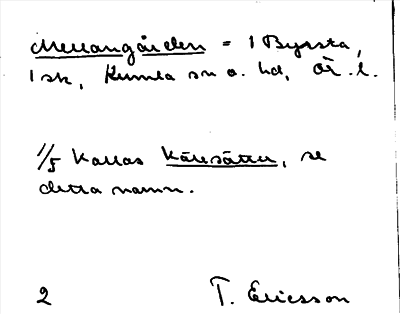 Mellangården = 1 Byrsta,
1 sk, Kumla sn o. hd, Ör. l.
1/5 Kallas Källsätter, se
detta namn.
2 T. Ericsson